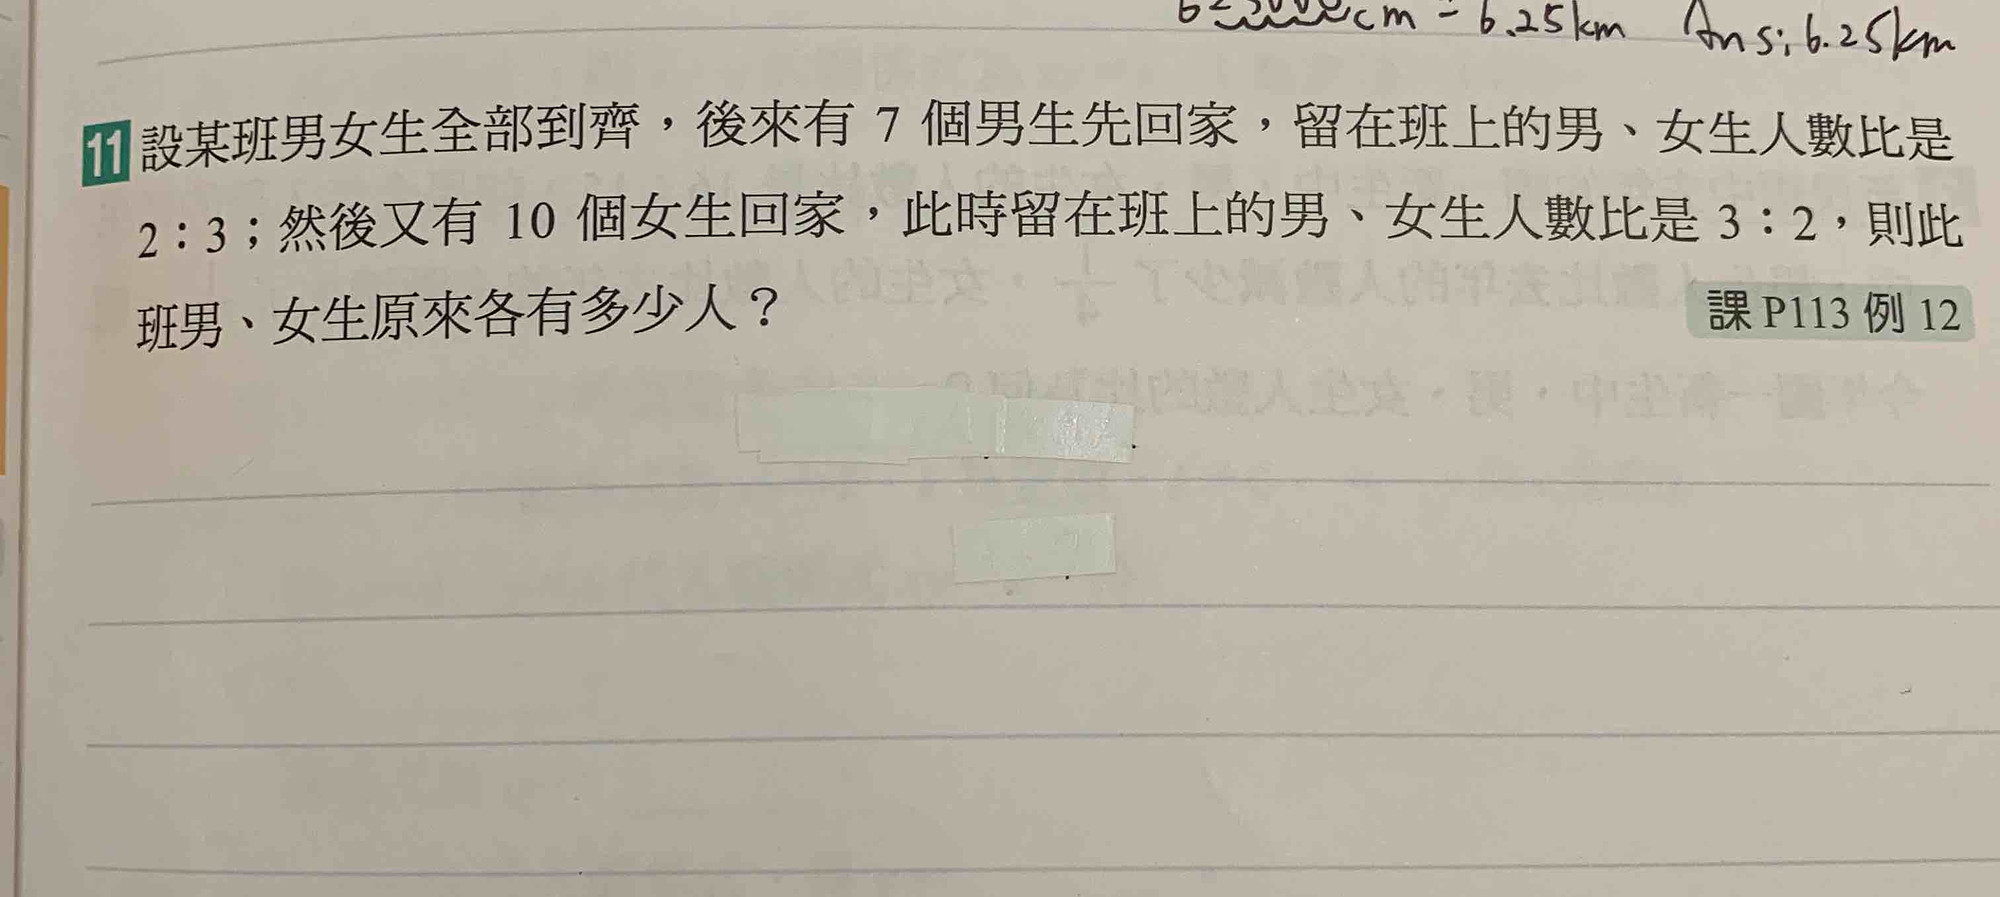 cm = 6.25km Ans: 6.25km
11 設某班男女生全部到齊，後來有 7 個男生先回家，留在班上的男、女生人數比是
2：3；然後又有 10 個女生回家，此時留在班上的男、女生人數比是 3：2，則此
班男、女生原來各有多少人？
課 P113 例 12